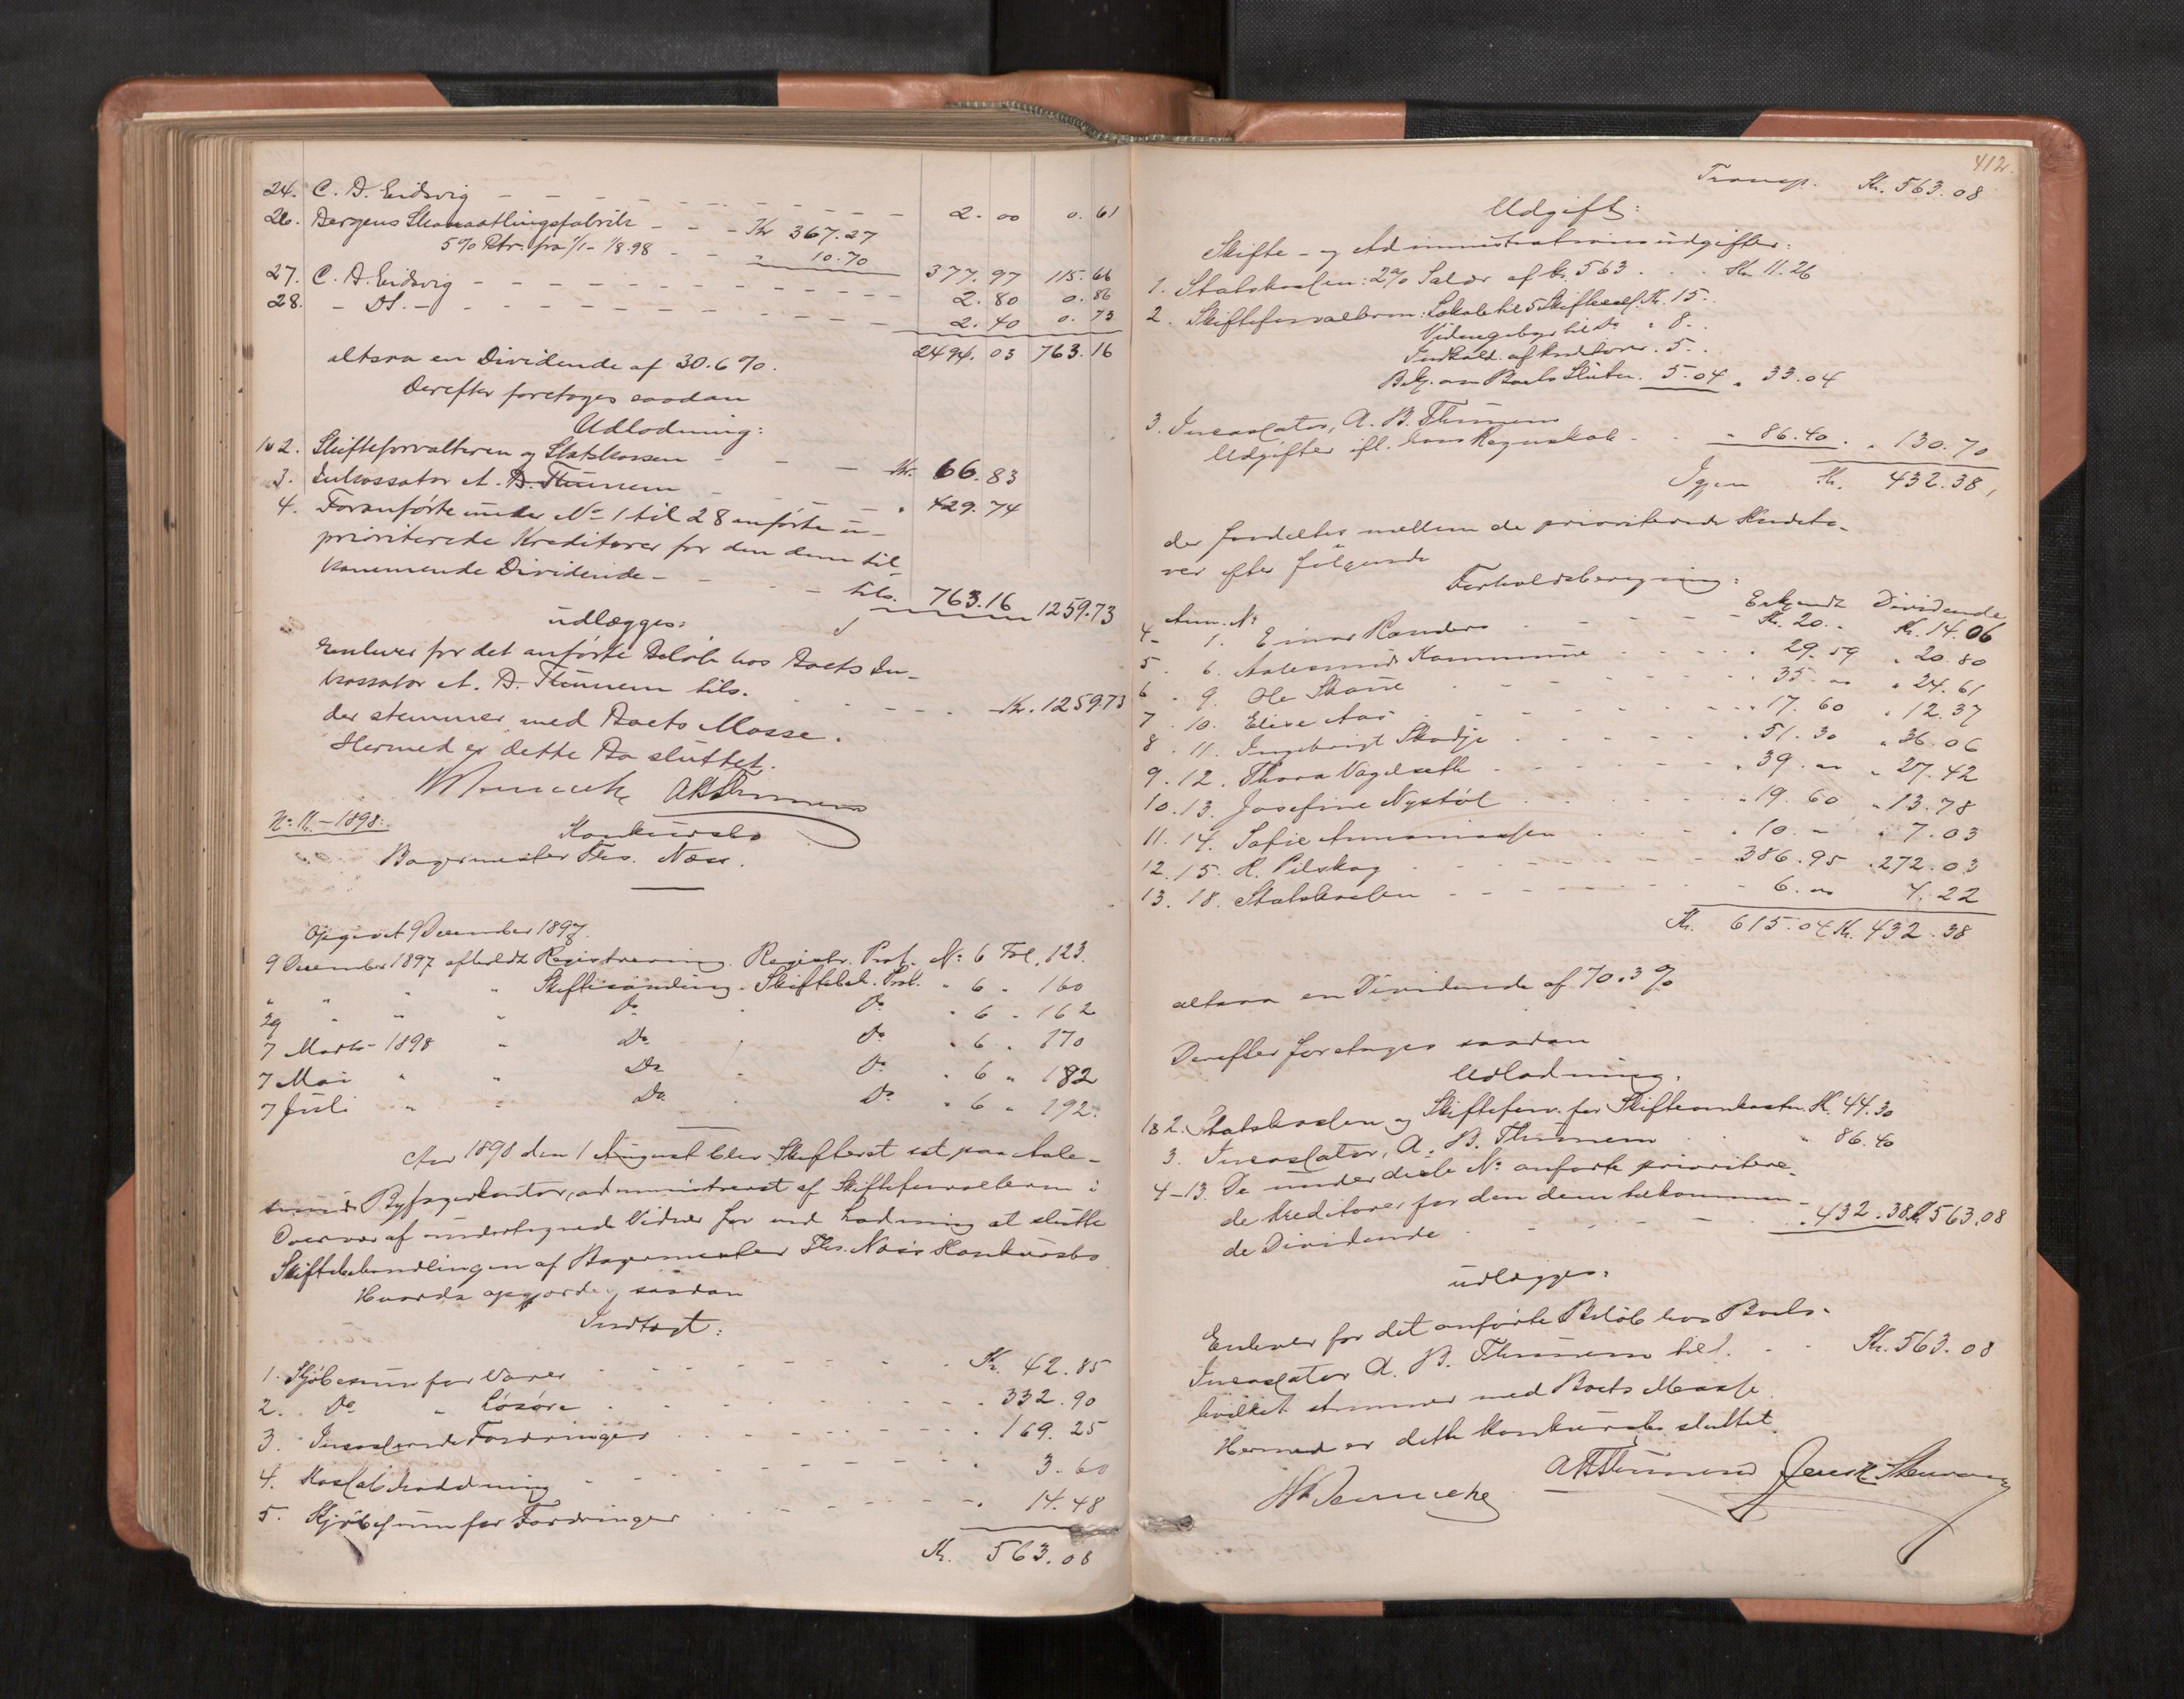 24. C. D. Eidsvig - - - 2.00 0.61
26. Bergens Skomaatlingsfabrik - - - Kr 367.27
5% Rtr. fra 1/1 - 1/8.98 - - " 10.70 377.97 115.66
27. C. D. Eidsvig - - - 2.80 0.86
28. - DS. - - - 2.40 0.73
2494.03 763.16
altsaa en Dividende af 30.6 %.
Derefter foretoges saadan
Udlodning:
1 & 2. Skifteforvalteren og Statskassen - - - Kr. 66.83
3. Inkassator A. B. Thunem - - " 429.74
4. Foranførte under No 1 til 28 anførte u-
prioriterede Kreditorer for den dem til-
kommende Dividende - - - tils. 763.16 1259.73
udlægges:
Enhver for det anførte Beløb hos Boets In-
kassator A. B. Thunem tils. - - - Kr. 1259.73
der stemmer med Boets Masse.
Hermed er dette Bo sluttet.
ABThunem
No 11. - 1898.
Konkursbo
Bagermester Ths. Næss.
Opgivet 9 December 1897.
9 December 1897 afholdt Registrering. Registr. Prot. No 6 Fol. 123.
" " " " Skiftesamling. Skiftebeh. Prot. " 6 " 160
29 " " " Do " Do " 6 " 162
7 Marts 1898 " Do " Do " 6 " 170
7 Mai " " Do " Do " 6 " 182
7 Juli " " Do " Do " 6 " 192.
Aar 1898 den 1 August blev Skifteret sat paa Aale-
sunds Byfogedkontor, administreret af Skifteforvalteren i
Overvær af undertegnede Vidner for ved Lodning at slutte
Skiftebehandlingen af Bagermester Ths. Næss Konkursbo
Hvorda opgjordes saadan
Indtægt:
1. Kjøbesum for Varer - - - Kr. 42.85
2. Do " Løsøre - - - " 332.90
3. Incasserede Fordringer - - - " 169.25
4. Kassabeholdning - - - " 3.60
5. Kjøbesum for Fordringer - - - " 14.48
Kr. 563.08
412.
Transp. Kr. 563.08
Udgift:
Skifte- og Administrationsudgifter:
1. Statskassen: 2% Salær af Kr. 563. . . Kr. 11.26
2. Skifteforvalteren: Lokale til 5 Skiftesaml. Kr. 15..
Vidnegebyr til Do " 8..
Indkald. af Kreditorer. 5..
Bekj. om Boets Slutn. 5.04 " 33.04
3. Incassator, A. B. Thunem
Udgifter ifl. hans Regnskab - . . " 86.40. " 130.70
Igjen Kr. 432.38,
der fordeltes mellem de prioriterede Kredito-
rer efter følgende
Forholdsberegning:
Anm. No Erkjendt Dividende
4 - 1. Einar Randers - - - Kr. 20.. Kr. 14.06
5 . 6. Aalesunds Kommune - - - " 29.59 " 20.80
6 . 9. Ole Skaue - - - " 35. " 24.61
7 . 10. Elise Aas - - - " 17.60 " 12.37
8 . 11. Ingebrigt Skodje - - - " 51.30 " 36.06
9 . 12. Thora Vågelseth - - - " 39. " 27.42
10 . 13. Josefine Nystøl - - - " 19.60 " 13.78
11. 14. Sofie - - - " 10. - " 7.03
12. 15. R. Pilskog - - - 386.95 " 272.03
13. 18. Statskassen - - - 6. 4.22
Kr. 615.04 Kr. 432.38
altsaa en Dividende af 70.3 %
Derefter foretoges saadan
Udlodning:
1 & 2. Statskassen og Skifteforv. for Skifteomkostn. Kr. 44.30
3. Incassator, A. B. Thunem . . " 86.40
4-13. De under disse No anførte prioritere-
de Kreditorer for den dem tilkommen-
de Dividende - - - " 432.38 Kr. 563.08
udlægges:
Enhver for det anførte Beløb hos Boets
Incassator A. B. Thunem tils. - - Kr. 563.08
hvilket stemmer med Boets Masse.
Hermed er dette Konkursbo sluttet.
ABThunem